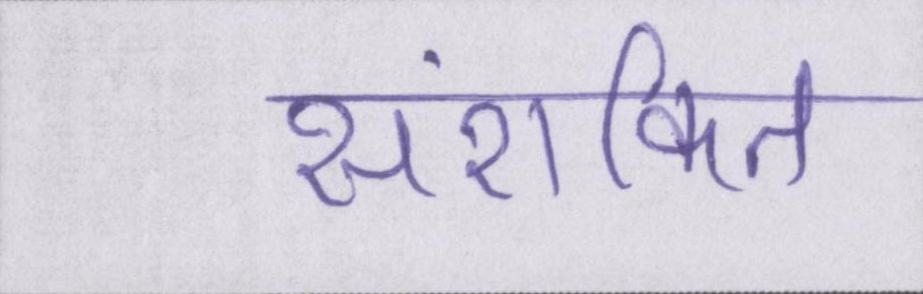 संशकित